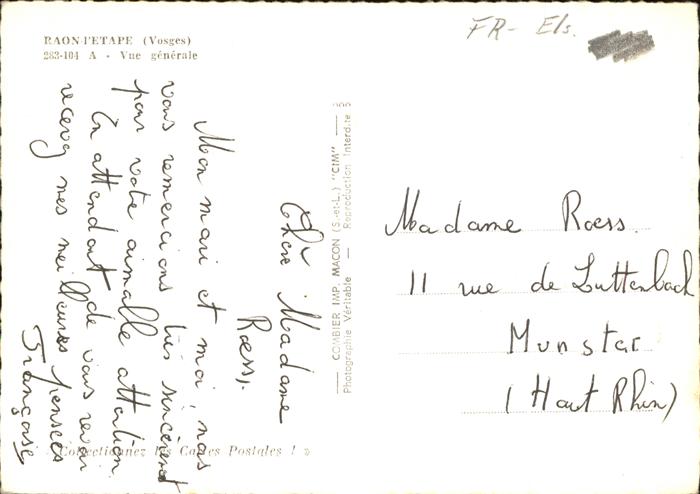 RAON-l'ETAPE (Vosges)
283-104 A - Vue générale
FR- Els.
Chère Madame
Roess,
Mon mari et moi, nous
vous remercions très sincèrement
pour votre aimable attention.
En attendant de vous revoir
recevez nos meilleures pensées
Françoise
COMBIER IMP. MACON (S.-et-L.) "CIM"
Photographie Véritable — Reproduction Interdite
Madame Roess.
11 rue de Luttenbach
Munster
(Haut Rhin)
Collectionnez les Cartes Postales ! »